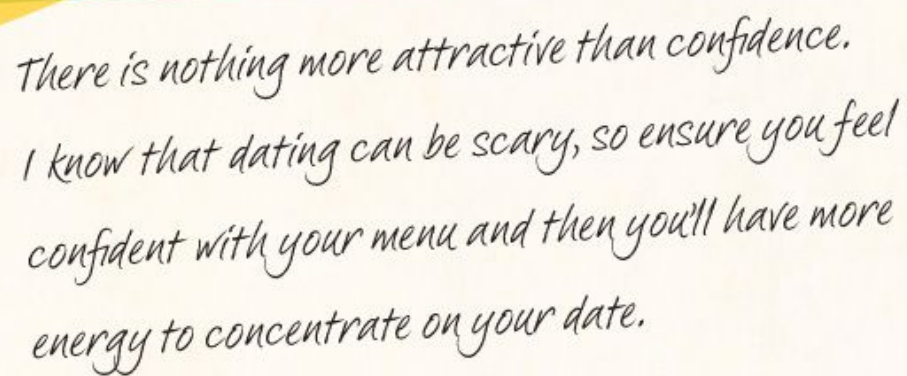 There is nothing more attractive than confidence.
I know that dating can be scary, so ensure you feel
confident with your menu and then you'll have more
energy to concentrate on your date.